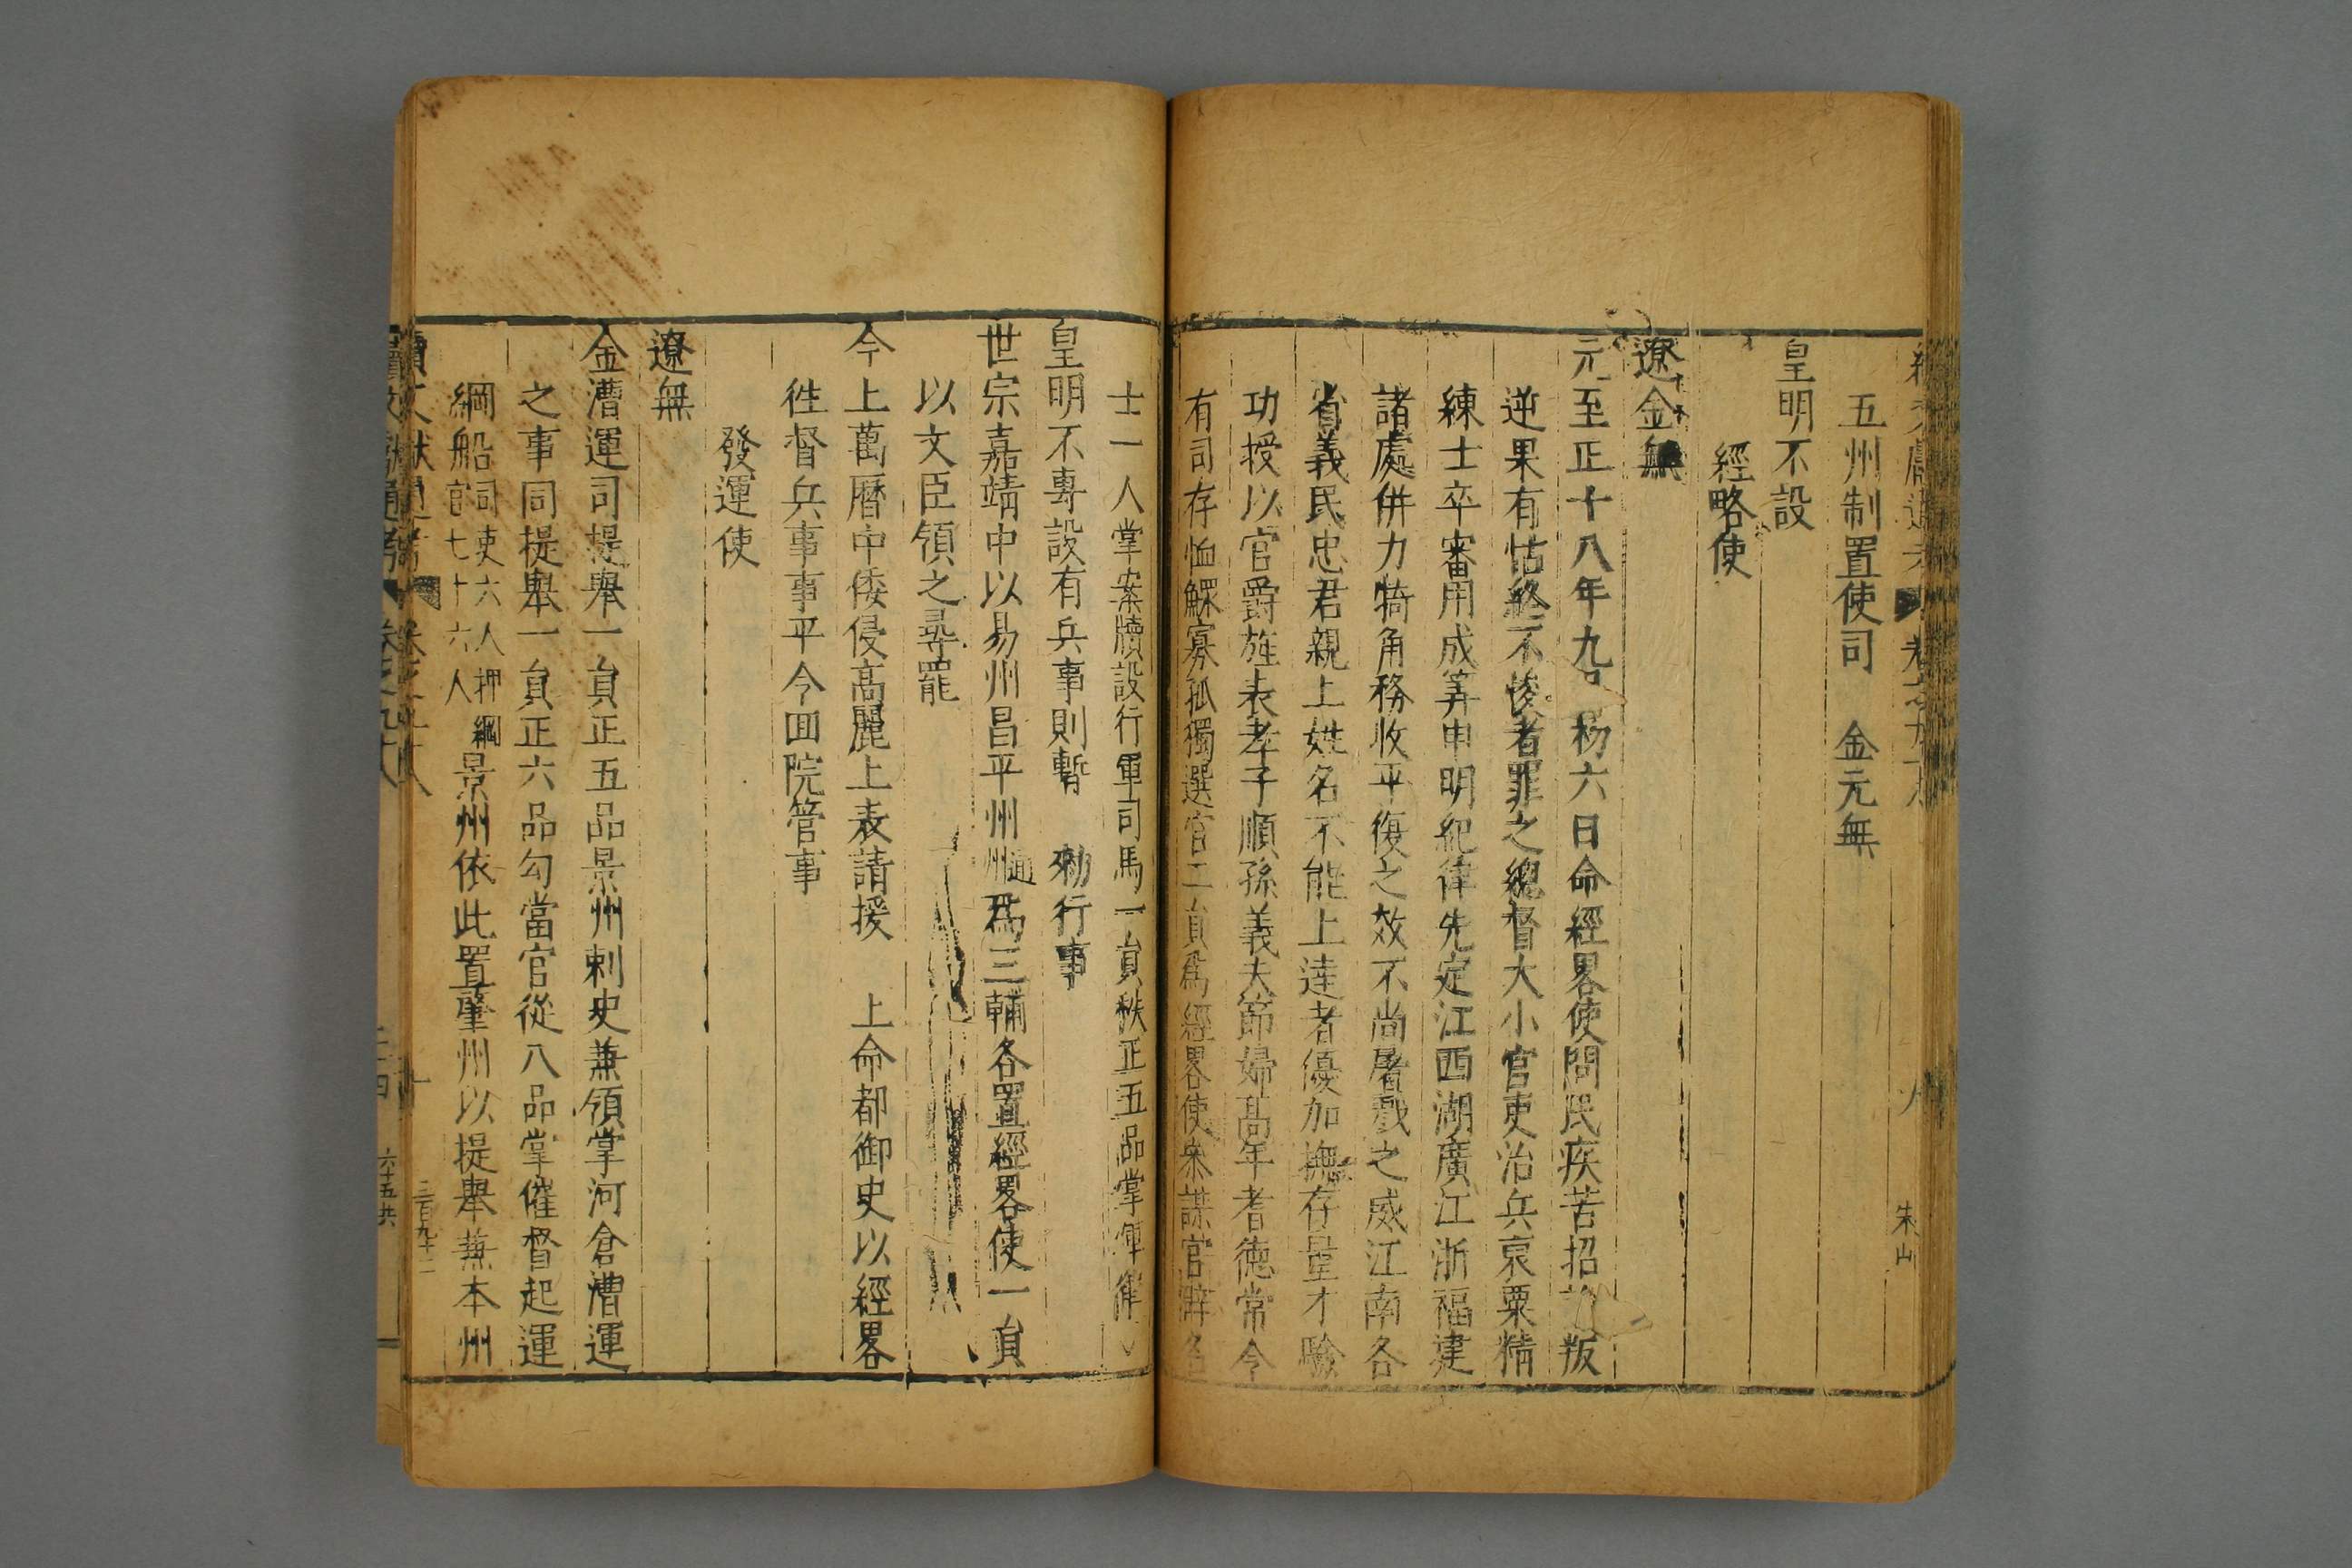 五州制置使司　金元無
皇明不設
經略使
遼金無
元至正十八年九　初六日命經畧使問民疾苦招　叛
逆果有怙終不悛者罪之總督大小官吏治兵裒粟精
練士卒審用成筭申明紀律先定江西湖廣江浙福建
諸處併力犄角務收平復之效不尚屠戮之威江南各
省義民忠君親上姓名不能上達者優加撫存量才驗
功授以官爵旌表孝子順孫義夫節婦高年耆德常令
有司存恤鰥寡孤獨選官二貟爲經畧使叅謀官辟名
士一人掌案牘設行軍司馬一貟秩正五品掌軍律
皇明不專設有兵事則暫　勑行事
世宗嘉靖中以易州昌平州通州爲三輔各置經畧使一貟
以文臣領之尋罷
今上萬曆中倭侵高麗上表請援　上命都御史以經畧
徃督兵事事平令回院管事
發運使
遼無
金漕運司提舉一貟正五品景州刺史兼領掌河倉漕運
之事同提舉一貟正六品勾當官從八品掌催督起運
綱船司吏六人押綱官七十六人景州依此置肇州以提舉兼本州
續文獻通考
二百九十二
朱山